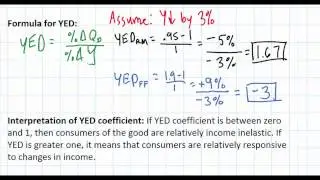 Formula for YED:
Assume: Y↓ by 3%
YED = %ΔQD / %ΔY
.95-1 / 1 = -5% / -3% = 1.67
YEDFF = 1.09-1 / 1 = +9% / -3% = -3
Interpretation of YED coefficient: If YED coefficient is between zero
and 1, then consumers of the good are relatively income inelastic. If
YED is greater one, it means that consumers are relatively responsive
to changes in income.